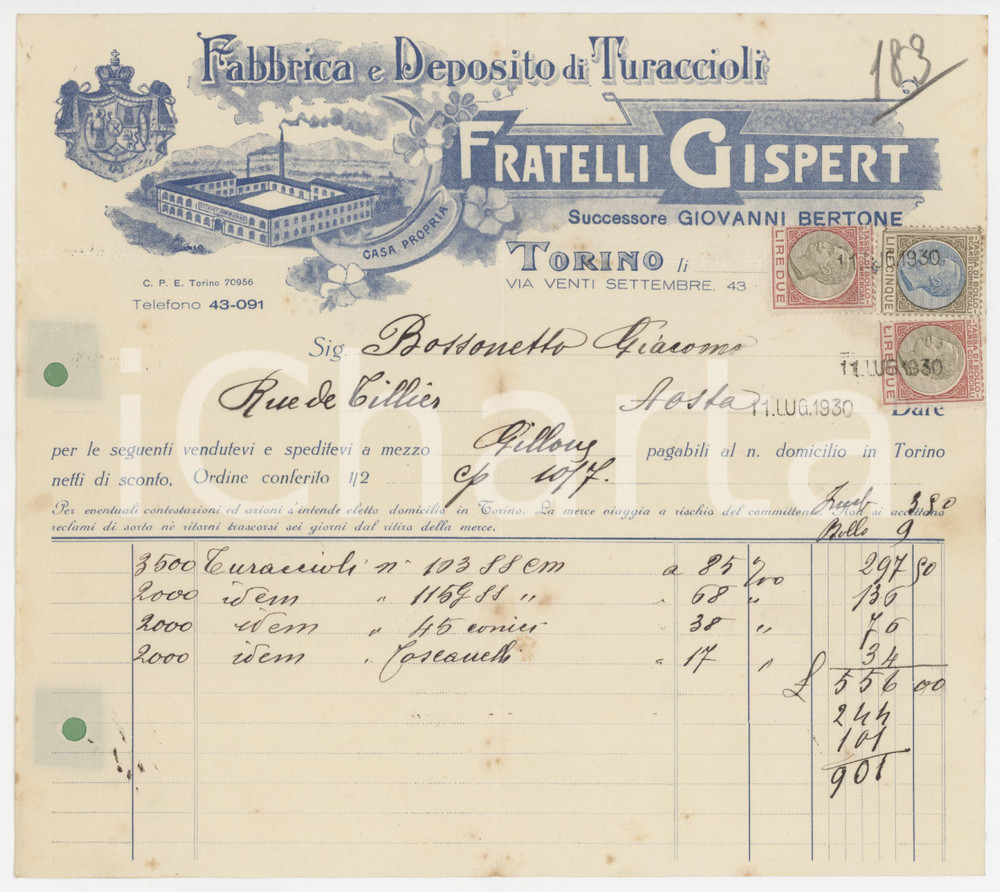 183
Fabbrica e Deposito di Turaccioli
FRATELLI GISPERT
Successore GIOVANNI BERTONE
CASA PROPRIA
TORINO li
VIA VENTI SETTEMBRE, 43
C. P. E. Torino 70956
Telefono 43-091
LIRE DUE
LIRE CINQUE
TASSA DI BOLLO
CAMBI COMMERCIALI
11 LUG.1930
LIRE DUE
TASSA DI BOLLO
CAMBI COMMERCIALI
11.LUG.1930
Sig. Bossonetto Giacomo
Rue de Tillier Aosta 11.LUG.1930 Dare
per le seguenti vendutevi e speditevi a mezzo pagabili al n. domicilio in Torino
netti di sconto, Ordine conferito 1/2 c/p 10/7.
Per eventuali contestazioni ed azioni s'intende eletto domicilio in Torino. La merce viaggia a rischio del committente. Non si accettano
reclami di sorta nè ritorni trascorsi sei giorni dal ritiro della merce.
Imb 3.50
Bollo 9
3500 Turaccioli n. 103 SS cm a 85 %00 297 50
2000 idem " 115 SS " " 68 " 136
2000 idem " 45 conici 38 " 76
2000 idem " Toscanelli " 17 " 34
£ 556 00
244
101
901
iCharta